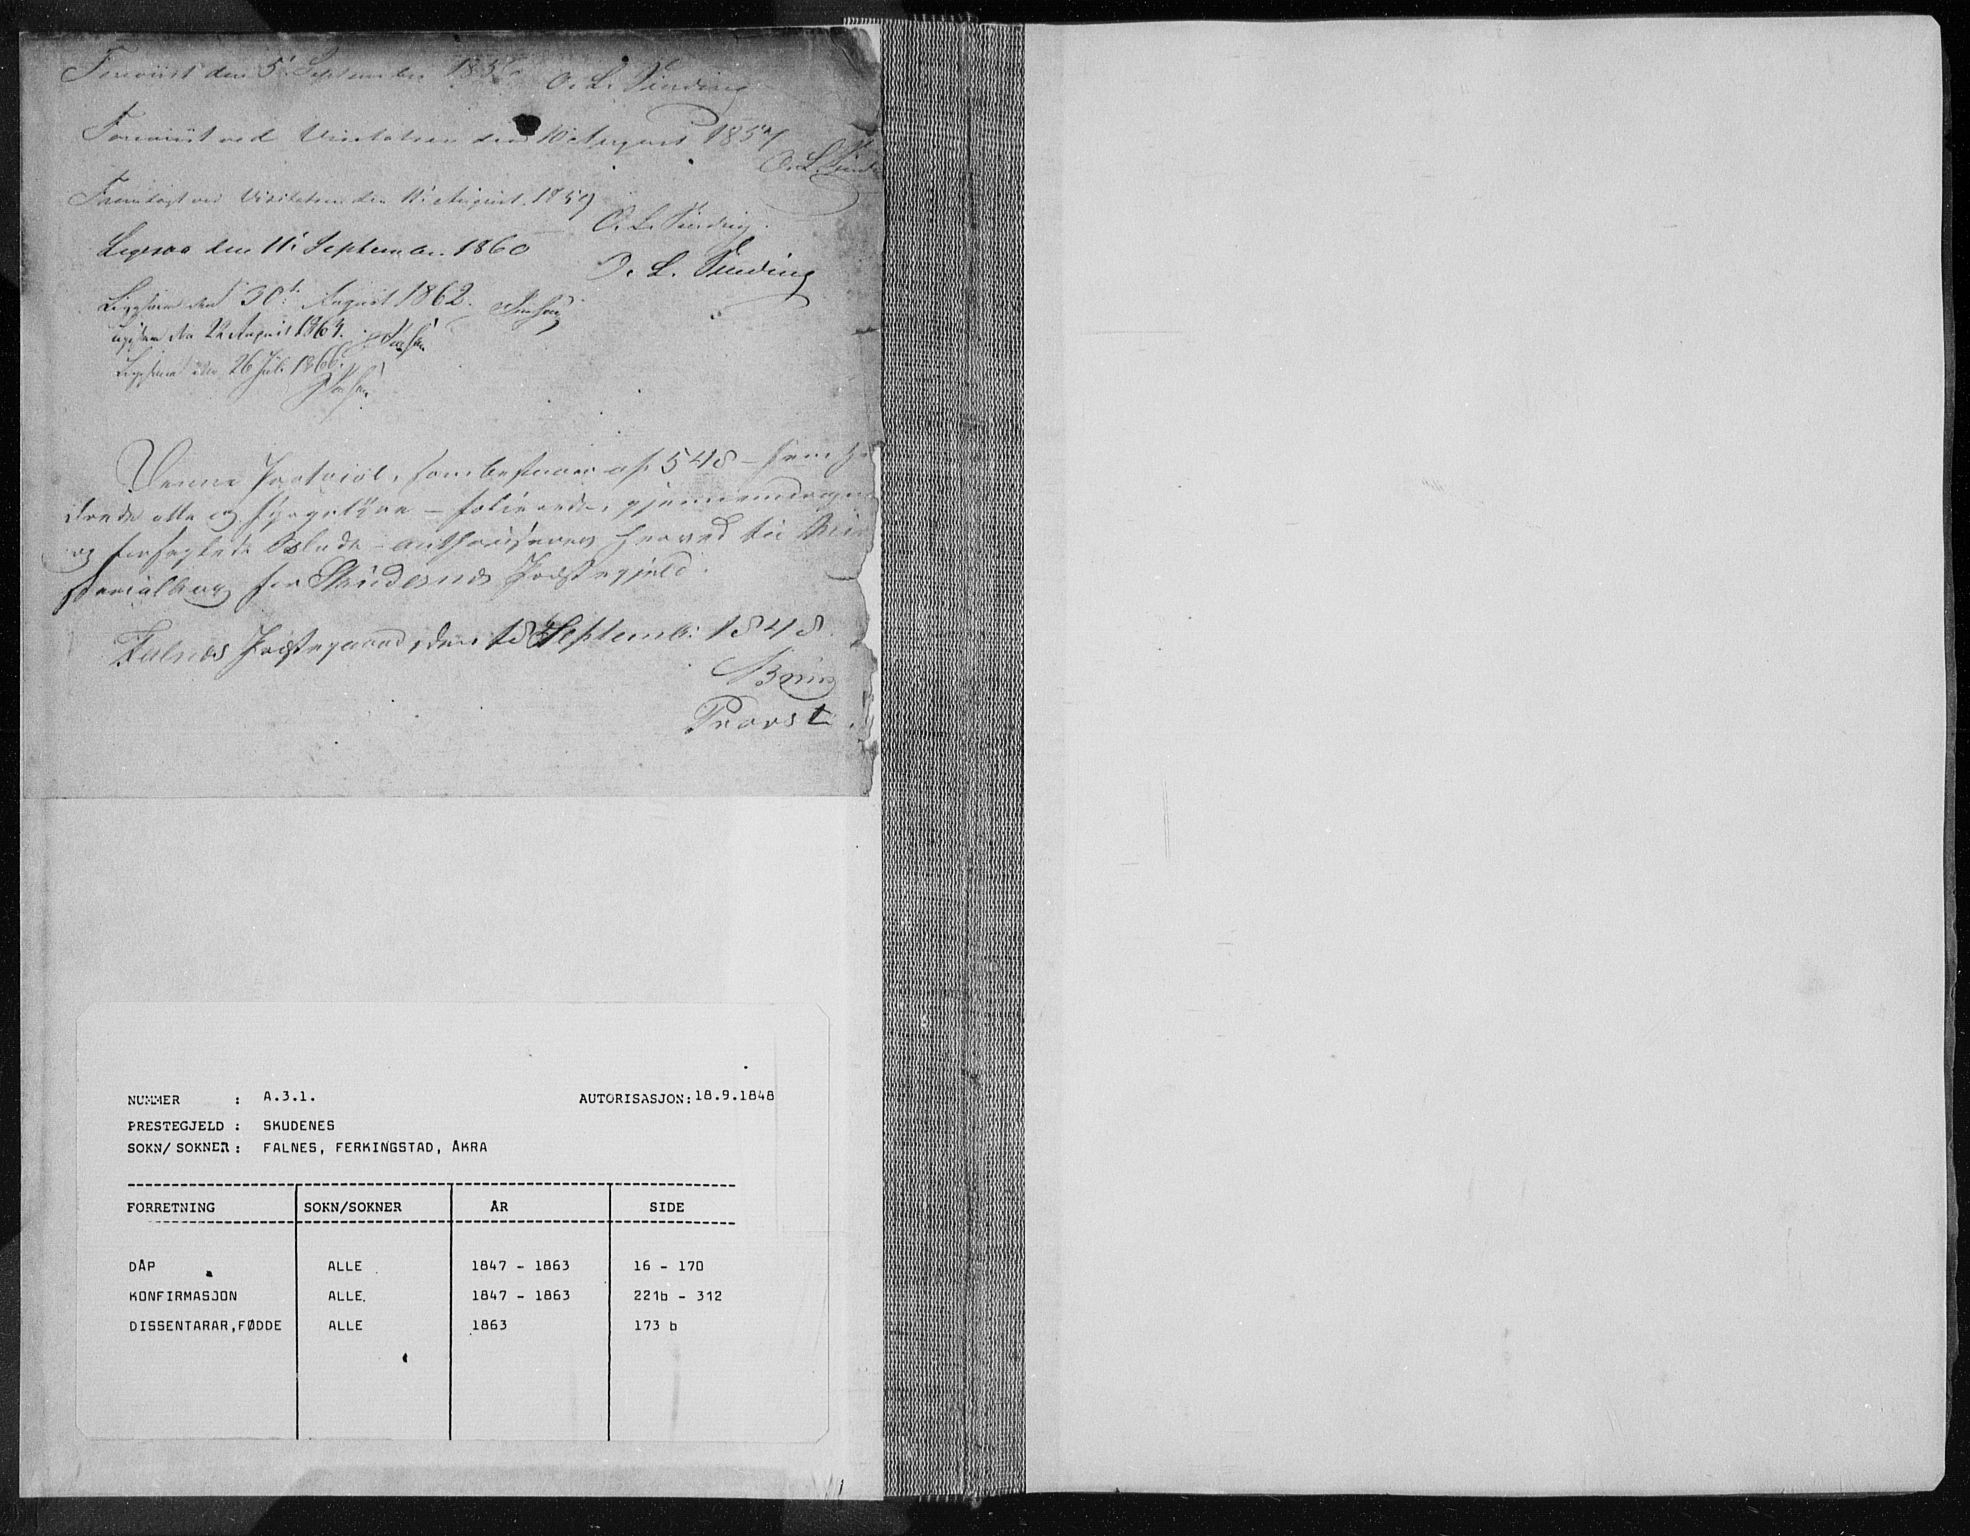 Foreviist den 5' September 1856 O. L. Sinding
Foreviist ved Visitatsen den 10 August 1857
O. L. Sinding
Fremlagt ved Visitatsen den 11' August 1859
O. L. Sinding.
Ligesaa den 11' September 1860
O. L. Sinding
Ligesaa den 30' August 1862.
Ligesaa den 22 August 1864.
Ligesaa den 26 Juli 1866.
Denne Protocol, som bestaaer af 548 – fem hun
drede otte og fyrgetyve – folierede, gjennemdragne
og forseglede Blade – authoriseres herved til Mini
sterialbog for Skudesnes Præstegjeld.
Falnæs Præstegaard, den 18 Septembr 1848.
Provst.
NUMMER : A.3.1. AUTORISASJON: 18.9.1848
PRESTEGJELD : SKUDENES
SOKN/SOKNER : FALNES, FERKINGSTAD, ÅKRA
FORRETNING SOKN/SOKNER ÅR SIDE
DÅP ALLE 1847 - 1863 16 - 170
KONFIRMASJON ALLE 1847 - 1863 221b - 312
DISSENTARAR,FØDDE ALLE 1863 173 b